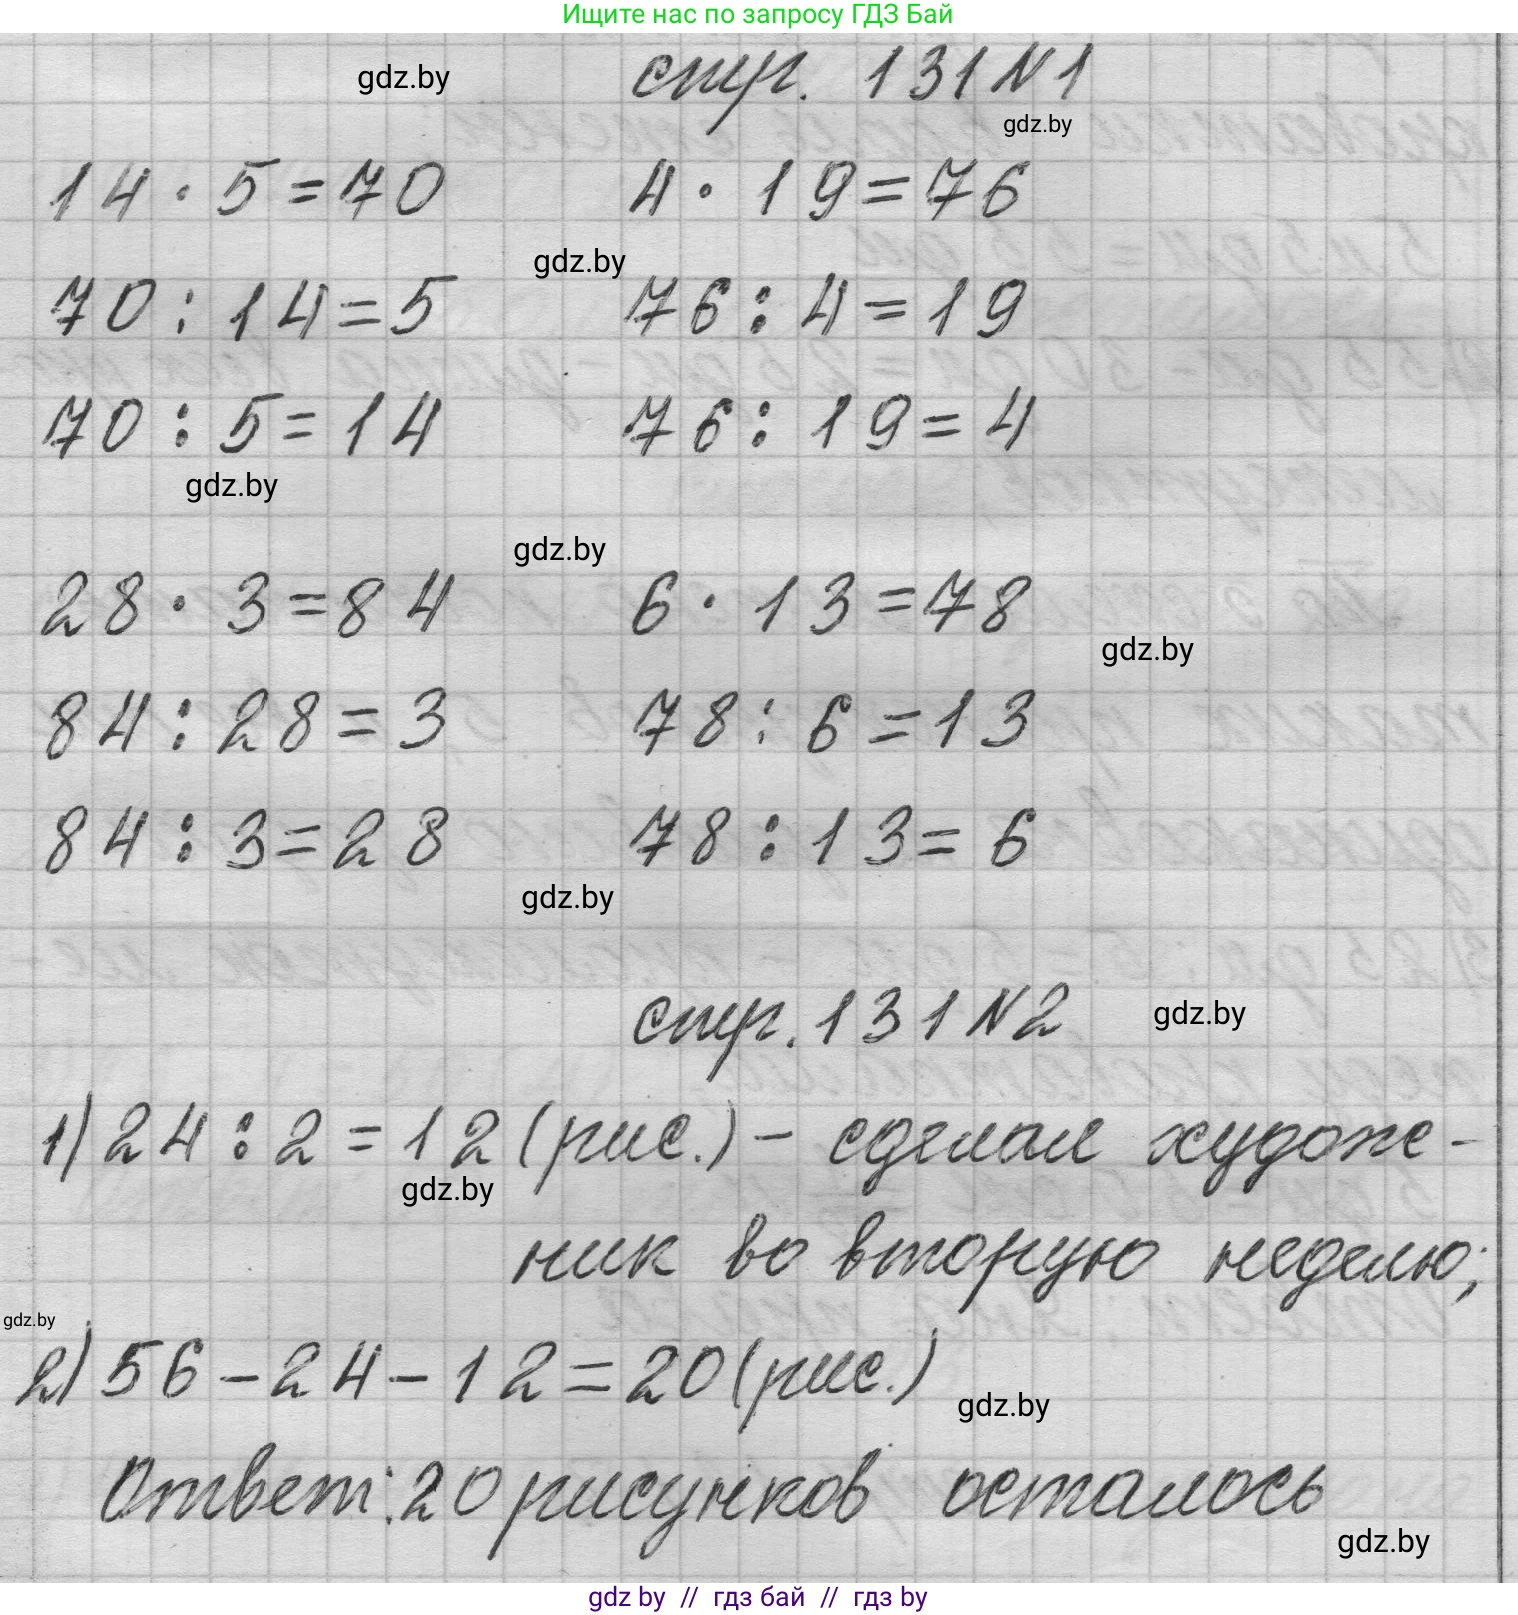 Ищите нас по запросу ГДЗ Бай
gdz.by
стр. 131 N 1
gdz.by
14 · 5 = 70 4 · 19 = 76
gdz.by
70 : 14 = 5 76 : 4 = 19
70 : 5 = 14 76 : 19 = 4
gdz.by
gdz.by
28 · 3 = 84 6 · 13 = 78
gdz.by
84 : 28 = 3 78 : 6 = 13
84 : 3 = 28 78 : 13 = 6
gdz.by
стр. 131 N 2
gdz.by
1) 24 : 2 = 12 (рис.) – сделал худож-
gdz.by
ник во вторую неделю;
gdz.by
2) 56 – 24 – 12 = 20 (рис.)
gdz.by
Ответ: 20 рисунков осталось
gdz.by
gdz by // гдз бай // гдз by